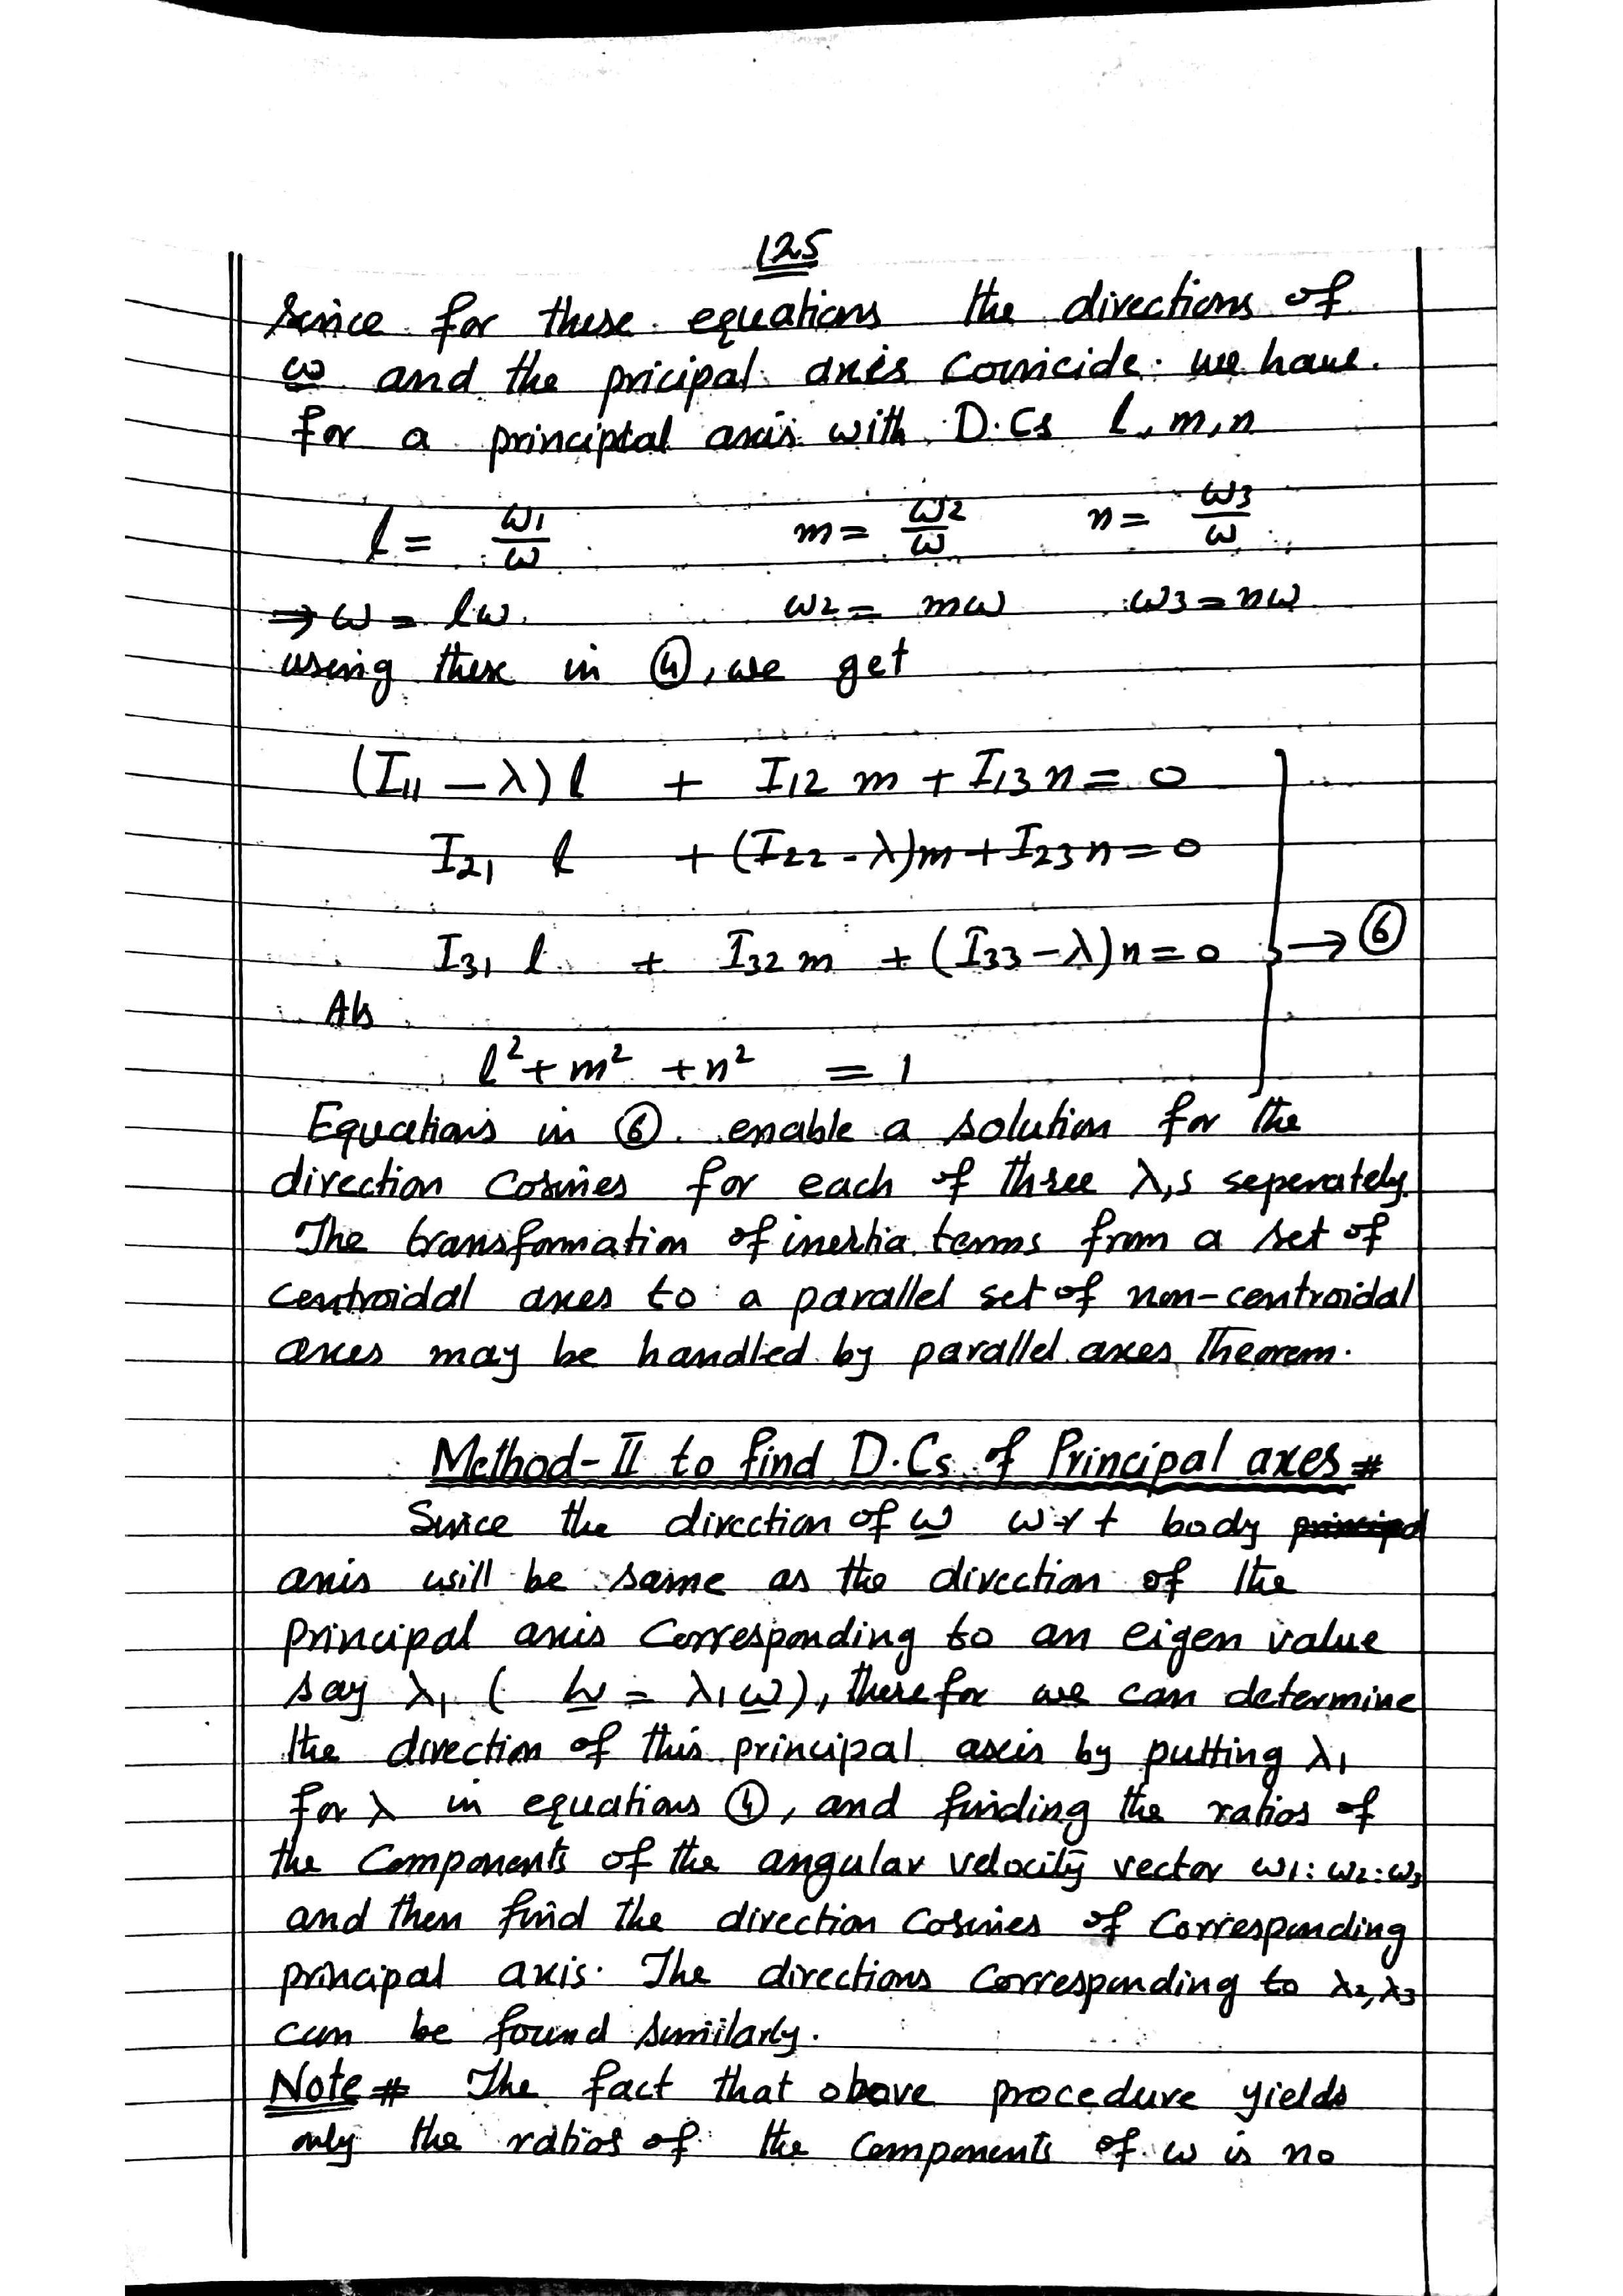 125
Since for these equations the directions of
ω and the pricipal axis comicide. we have.
for a principtal axis with D.Cs l, m, n
l = ω1/ω m = ω2/ω n = ω3/ω
⇒ ω = lω. ω2 = mω ω3 = nω
using these in ④, we get
(I11 − λ) l + I12 m + I13 n = 0
I21 l + (I22 - λ)m + I23 n = 0
I31 l + I32 m + (I33 − λ)n = 0 → ⑥
Als
l² + m² + n² = 1
Equations in ⑥ enable a solution for the
direction cosines for each of three λ,s seperately.
The transformation of inertia terms from a set of
centroidal axes to a parallel set of non-centroidal
axes may be handled by parallel axes Theorem.
Method-II to find D.Cs of Principal axes #
Since the direction of ω w r t body
axis will be same as the direction of the
principal axis Corresponding to an eigen value
say λ1 ( L = λ1ω), therefor we can determine
the direction of this principal axis by putting λ1
for λ in equations ④, and finding the ratios of
the Components of the angular velocity vector ω1: ω2: ω3
and then find the direction cosines of Corresponding
principal axis. The directions Corresponding to λ2, λ3
can be found similarly.
Note # The fact that above procedure yields
only the ratios of the Components of ω is no